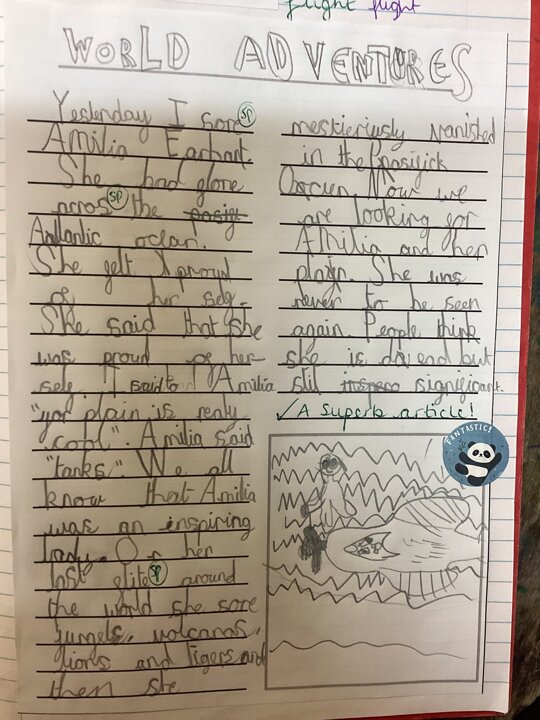 flight flight
WORLD ADVENTURES
Yesterday I sore
sp
Amilia Earhart
She had glore
sp
arros the pasig
Atlantic ocan.
She felt proud
of her self.
She said that she
was proud of her-
self. I said to Amilia
"yor plain is realy
cool". Amilia said
"tanks". We all
know that Amilia
was an inspiring
lady. On her
last flite around
sp
the world she sore
jungels, volcanas,
lions and Tigers and
then she
mestieriusly vanished
in the pasigick
Now we
are looking for
AMilia and her
plain. She was
never to be seen
again. People think
she is daiend but
stil significant.
✓ A superb article!
FANTASTIC!